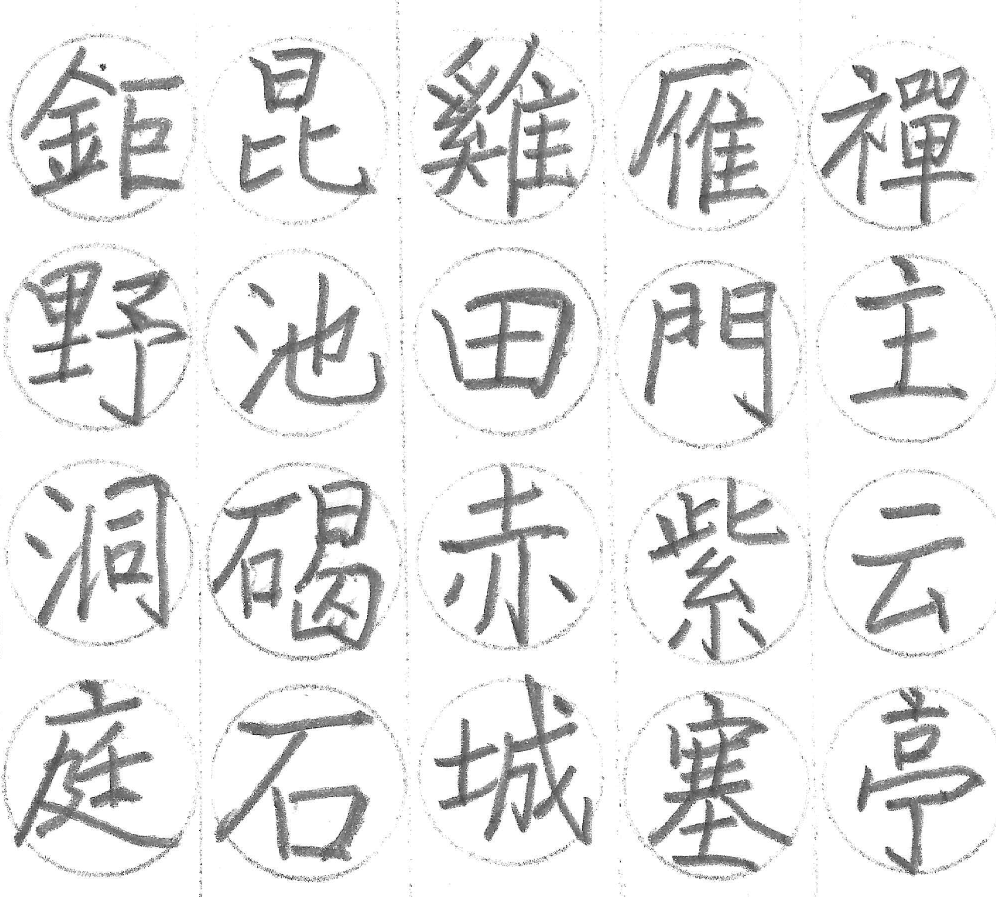 禪主云亭
雁門紫塞
雞田赤城
昆池碣石
鉅野洞庭